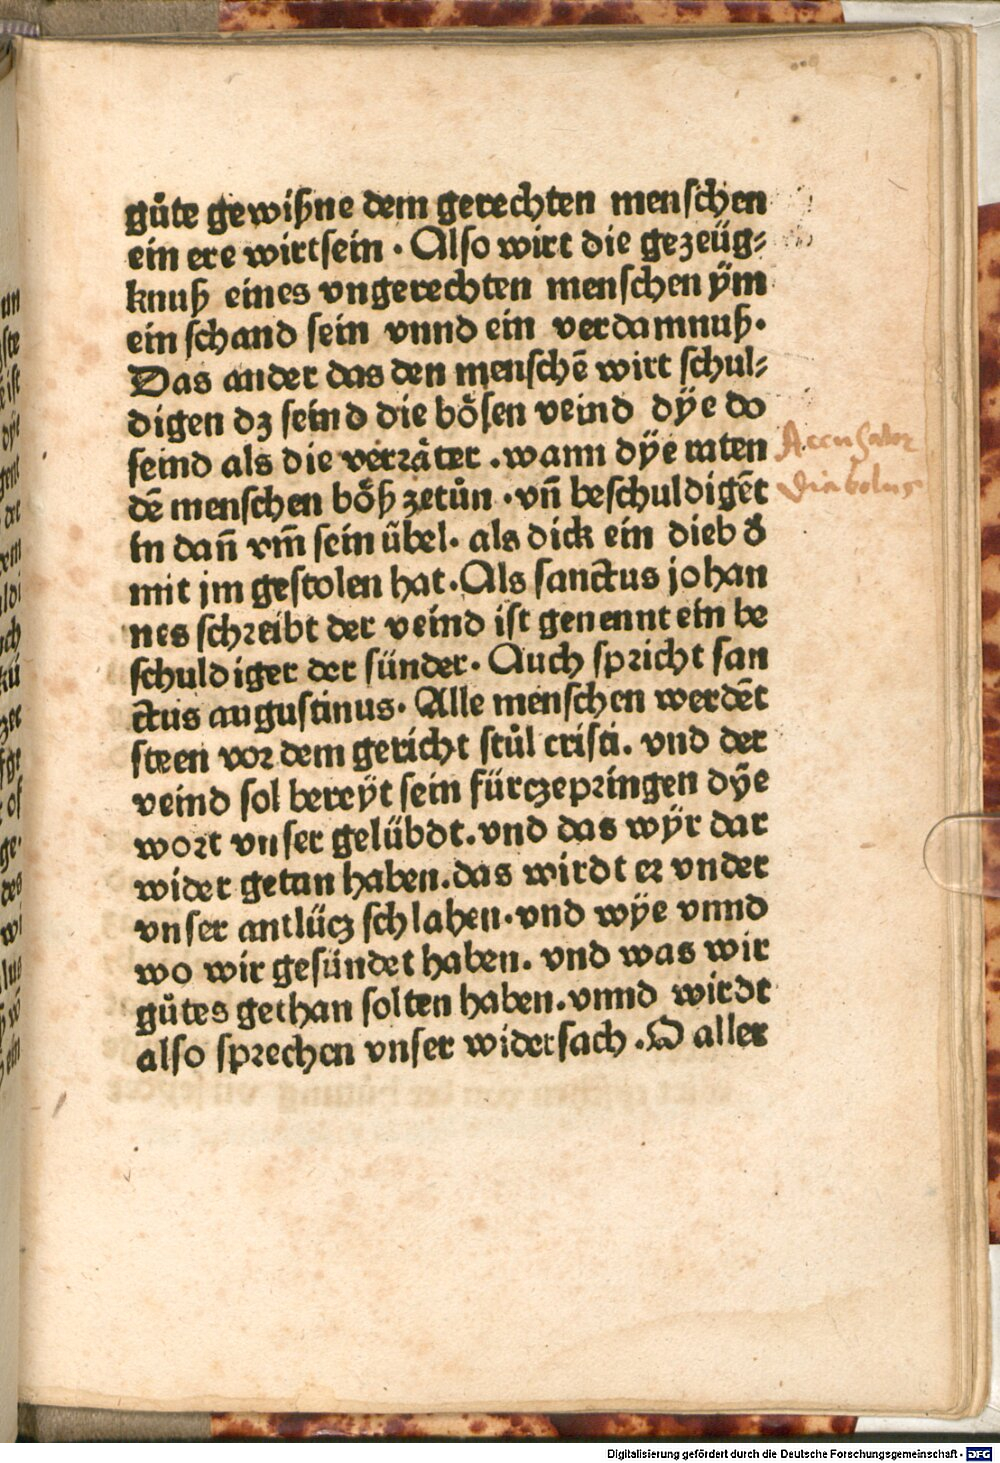 gůte gewißne dem gerechten menschen
ein ere wirt sein · Also wirt die gezeüg⸗
knuß eines vngerechten menschen ÿm
ein schand sein vnnd ein verdamnuß·
Das ander das den menschē wirt schul⸗
digen dz seind die bo̊sen veind dÿe do
seind als die verräter .wann dÿe raten
dē menschen bo̊ß zetůn ·vn̄ beschuldigēt
in dan̄ vm̄ sein übel· als dick ein dieb d̓
mit jm gestolen hat·Als sanctus johan
nes schreibt der veind ist genennt ein be
schuldiger der sünder· Auch spricht san
ctus augustinus· Alle menschen werdēt
steen vor dem gericht stůl cristi. vnd der
veind sol bereÿt sein fürczepringen dÿe
wort vnser gelübdt.vnd das wÿr dar
wider getan haben.das wirdt er vnder
vnser antlücz schlahen·vnd wÿe vnnd
wo wir gesündet haben. vnd was wir
gůtes gethan solten haben.vnnd wirdt
also sprechen vnser widersach .O aller
Accusator
Diabolus
Digitalisierung gefördert durch die Deutsche Forschungsgemeinschaft - DFG